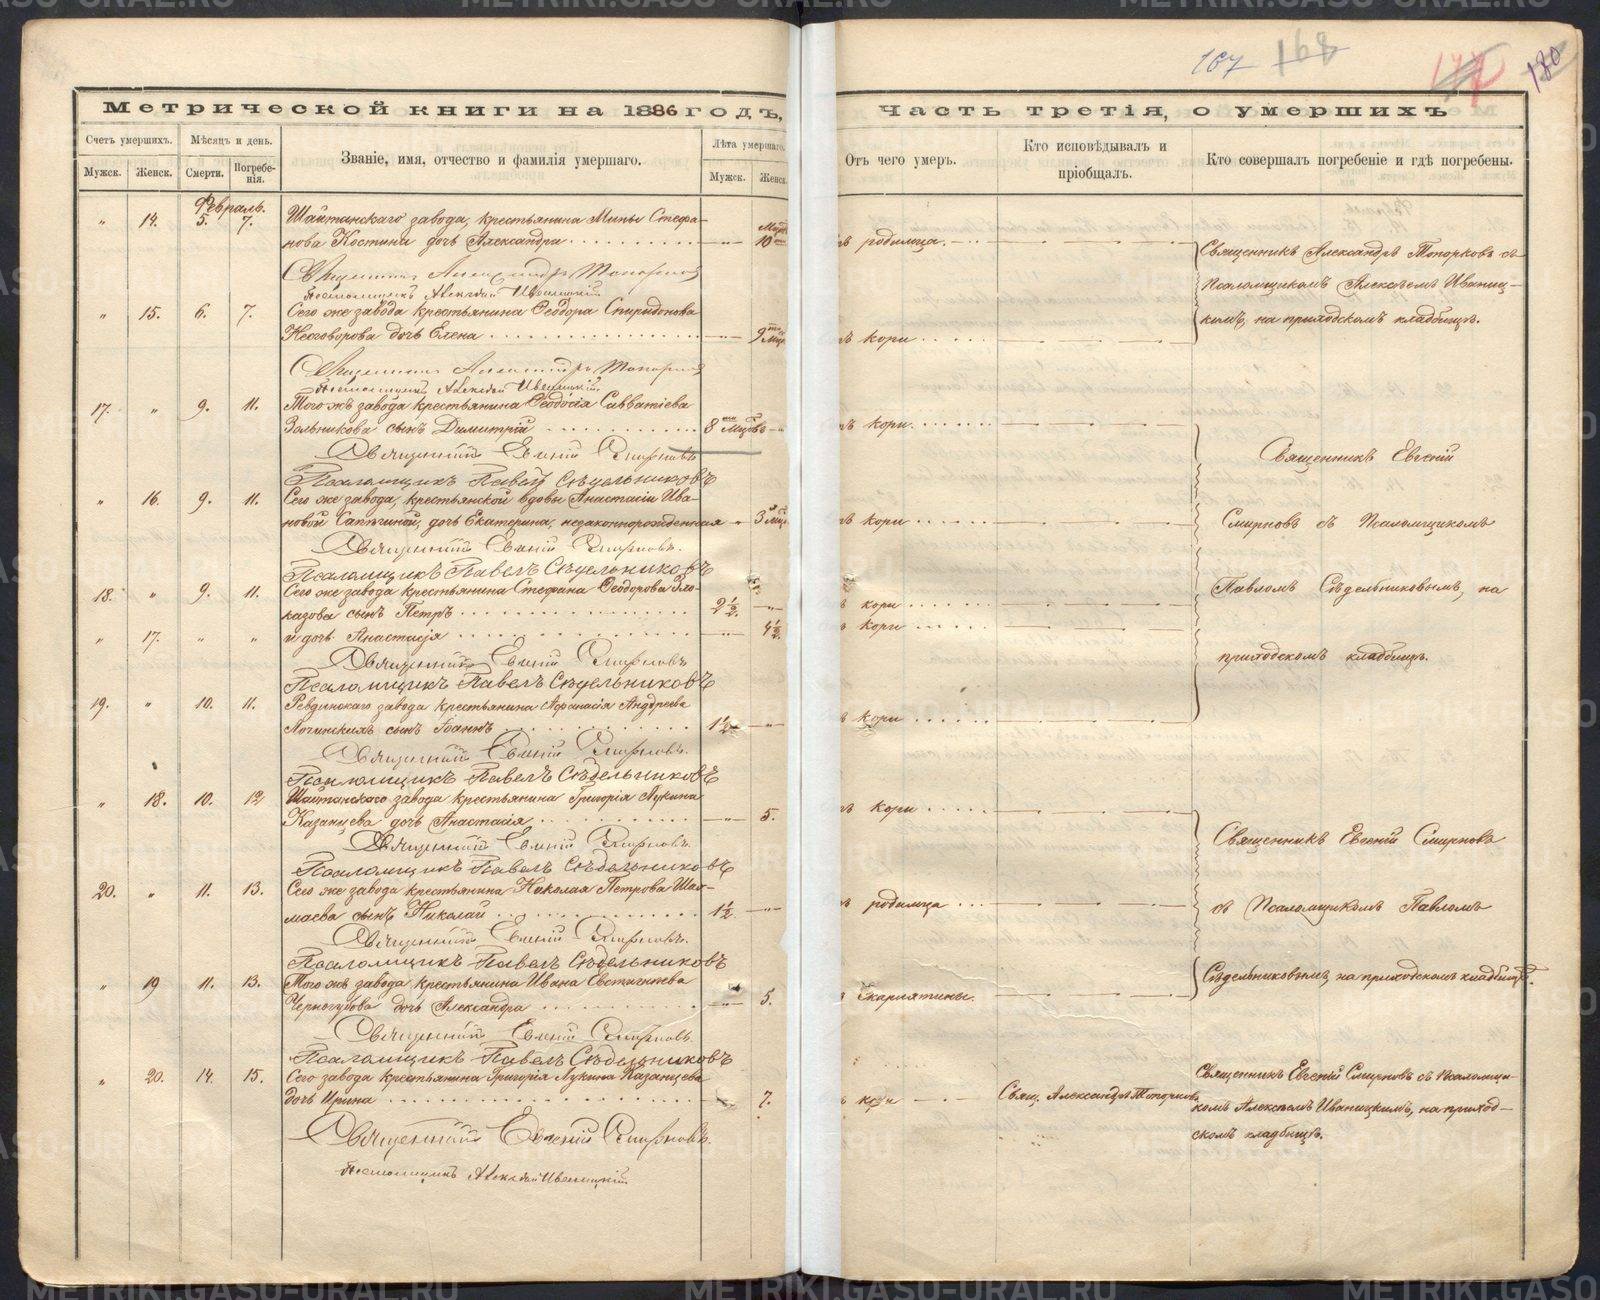 167 168 177 180
Метрической книги на 1886 годъ,
Часть третія, о умершихъ
Счетъ умершихъ.
Мѣсяцъ и день.
Званіе, имя, отчество и фамилія умершаго.
Лѣта умершаго.
Мужск.
Женск.
Смерти.
Погребенія.
Мужск.
Женск.
Отъ чего умеръ.
Кто исповѣдывалъ и
пріобщалъ.
Кто совершалъ погребеніе и гдѣ погребены.
Февраль.
" 14. 5. 7. Шайтанскаго завода, крестьянина Мины Стефа-
нова Костина дочь Александра 10 родимца.
Священникъ Александръ Топорковъ
Псаломщикъ Алексѣй Иваницкій
Священникъ Александръ Топорковъ съ
Псаломщикомъ Алексѣемъ Иваниц-
кимъ, на приходскомъ кладбищѣ.
" 15. 6. 7. Сего же завода крестьянина Ѳеодора Спиридонова
Неговорова дочь Елена 9 кори
Священникъ Александръ Топорковъ
Псаломщикъ Алексѣй Иваницкій
17. " 9. 11. Того жъ завода крестьянина Ѳеодосія Савватіева
Зольникова сынъ Димитрій 8 кори.
Священникъ Евгеній Смирновъ
Псаломщикъ Павелъ Сѣдельниковъ
" 16. 9. 11. Сего же завода, крестьянской вдовы Анастасіи Ива-
новой Сапегиной, дочь Екатерина, незаконнорожденная " 3 кори
Священникъ Евгеній Смирновъ.
Псаломщикъ Павелъ Сѣдельниковъ
18. " 9. 11. Сего же завода крестьянина Стефана Ѳеодорова Зло-
казова сынъ Петръ 2 1/2. кори
" 17. " " и дочь Анастасія 4 1/2. кори
Священникъ Евгеній Смирновъ
Псаломщикъ Павелъ Сѣдельниковъ
19. " 10. 11. Ревдинскаго завода крестьянина Аѳанасія Андреева
Логинскихъ сынъ Іоаннъ 1 1/2 кори
Священникъ Евгеній Смирновъ.
Псаломщикъ Павелъ Сѣдельниковъ
Священникъ Евгеній
Смирновъ съ Псаломщикомъ
Павломъ Сѣдельниковымъ, на
приходскомъ кладбищѣ.
" 18. 10. 12 Шайтанскаго завода крестьянина Григорія Лукина
Казанцева дочь Анастасія 5. кори
Священникъ Евгеній Смирновъ.
Псаломщикъ Павелъ Сѣдельниковъ
20. " 11. 13. Сего же завода крестьянина Николая Петрова Шал-
маева сынъ Николай 1 1/2. родимца
Священникъ Евгеній Смирновъ.
Псаломщикъ Павелъ Сѣдельниковъ
" 19 11. 13. Того жъ завода крестьянина Ивана Евстигнеева
Черногубова дочь Александра 5. Скарлятины.
Священникъ Евгеній Смирновъ.
Псаломщикъ Павелъ Сѣдельниковъ
Священникъ Евгеній Смирновъ
съ Псаломщикомъ Павломъ
Сѣдельниковымъ, на приходскомъ кладбищѣ.
" 20. 14. 15. Сего завода крестьянина Григорія Лукина Казанцева
дочь Ирина 7. кори Свящ. Александръ Топорковъ
Священникъ Евгеній Смирновъ.
Псаломщикъ Алексѣй Иваницкій
Священникъ Евгеній Смирновъ съ Псаломщи-
комъ Алексѣемъ Иваницкимъ, на приход-
скомъ кладбищѣ.
METRIKI.GASO-URAL.RU